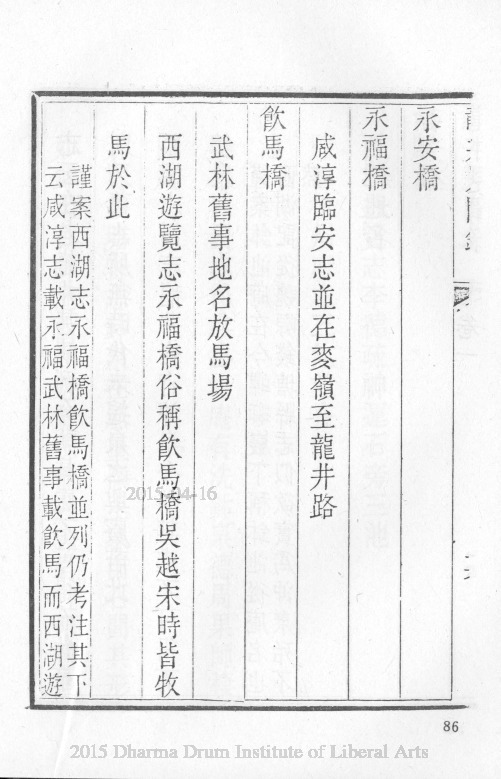 永安橋
永福橋
咸淳臨安志並在麥嶺至龍井路
飲馬橋
武林舊事地名放馬場
西湖遊覽志永福橋俗稱飲馬橋吳越宋時皆牧
馬於此
謹案西湖志永福橋飲馬橋並列仍考注其下
云咸淳志載永福武林舊事載飲馬而西湖遊
2015-04-16
86
2015 Dharma Drum Institute of Liberal Arts